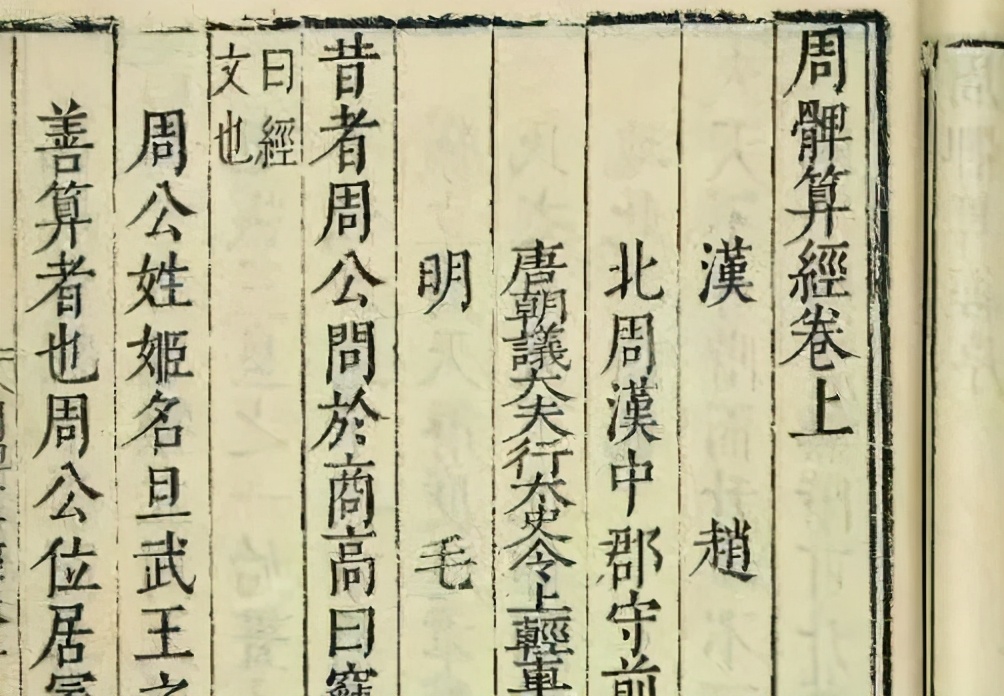 周髀算經卷上
漢 趙
北周漢中郡守前
唐朝議大夫行太史令上輕車
明 毛
昔者周公問於商高曰竊
曰經
文也
周公姓姬名旦武王之
善算者也周公位居